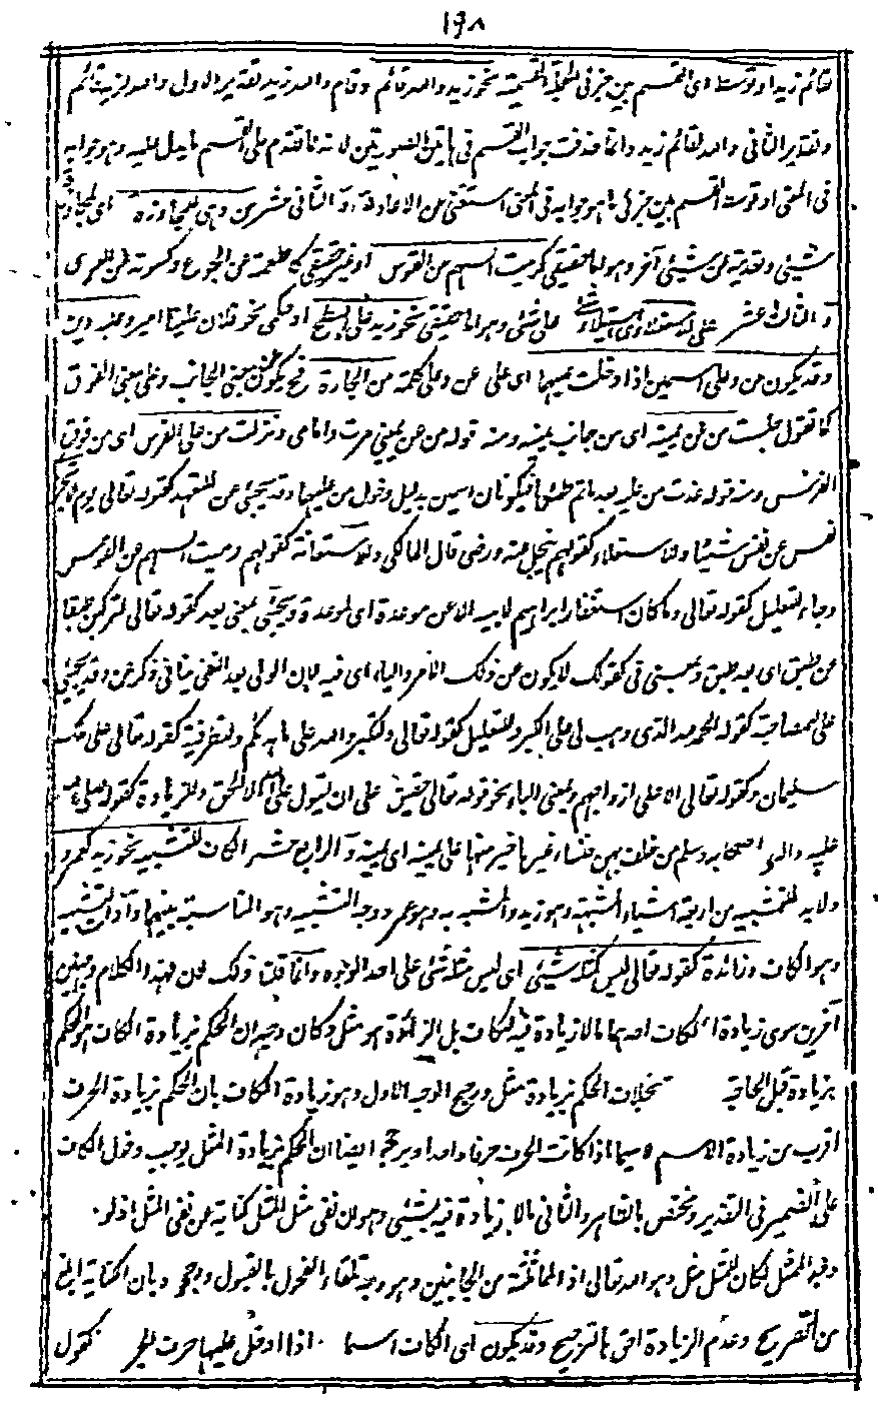 ١٩٨
لقائم زيد او توسط اى القسم بين جزئى الجملة القسمية نحو زيد والله قائم وقام والله زيد تقدير الاول والله لزيد قائم
وتقدير الثانى والله لقائم زيد وانما حذفت جواب القسم فى هاتين الصورتين لانه ما تقدم على القسم ما يدل عليه وهو جوابه
فى المعنى او توسط القسم بين جزئى ما هو جوابه فى المعنى استغنى عن الاعادة و الثانى عشر عن وهى للمجاوزة اى لمجاوزة
شيئ وتعديته عن شيئ آخر وهو اما حقيقى كرميت السهم عن القوس او غير حقيقى كاطعمه عن الجوع وكسوته عن العرى
و الثالث عشر على للاستعلاء اى استيلاء شئ على شئ وهو اما حقيقى نحو زيد على السطح او حكمى نحو فلان علينا امير وعليه دين
وقد يكون عن وعلى اسمين اذا دخلت عليهما اى على عن وعلى كلمة من الجارة فح يكون عن بمعنى الجانب وعلى بمعنى الفوق
كما تقول جلست من عن يمينه اى من جانب يمينه ومنه قوله من عن يمينى مرت وامامى ونزلت من على الفرس اى من فوق
الفرس ومنه قوله غدت من عليه بعد ما تم ظمؤها فيكونان اسمين بدليل دخول من عليهما وقد يجيئ عن للتعهد كقوله تعالى يوم لا تجزى
نفس عن نفس شيئا وللاستعلاء كقولهم يبخل عنه ورضى قال المالكى وللاستعانة كقولهم رميت السهم عن القوس
وجاء للتعليل كقوله تعالى وما كان استغفار ابراهيم لابيه الا عن موعدة اى لموعدة ويجيئ بمعنى بعد كقوله تعالى لتركبن طبقا
عن طبق اى بعد طبق وبمعنى فى كقولك لا يكون عن ذلك الامر واليا اى فيه لان الولى بعد النفى يتانى ذكر عن وقد يجيئ
على للمصاحبة كقوله الحمد لله الذى وهب لى على الكبر وللتعليل كقوله تعالى ولتكبروا الله على ما هداكم وللظرفية كقوله تعالى على ملك
سليمان وكقوله تعالى الا على ازواجهم وبمعنى الباء نحو قوله تعالى حقيق على ان لا اقول على الله الا الحق وللزيادة كقوله صلى الله
عليه واله واصحابه وسلم من حلف بيمين فشاء غيرها خير منها على يمينه اى يمينه و الرابع عشر الكاف للتشبيه نحو زيد كعمرو
ولابد للتشبيه من اربعة اشياء المشبه وهو زيد والمشبه به وهو عمرو ووجه التشبيه وهو المناسبة بينهما وآداة التشبيه
وهو الكاف وزائدة كقوله تعالى ليس كمثله شيئ اى ليس مثله شئ على احد الوجوه وانما قلنا ذلك لان لهذا الكلام وجهين
آخرين سوى زيادة الكاف احدهما ما لا زيادة فيه للكاف بل الزائدة هو مثل وكان وجه ان الحكم بزيادة الكاف هو الحكم
بزيادة قبل الحاجة بخلاف الحكم بزيادة مثل ورجح الوجه الاول وهو زيادة الكاف بان الحكم بزيادة الحرف
اقرب من زيادة الاسم لا سيما اذا كانت الحرف حرفا واحدا ويرجح ايضا ان الحكم بزيادة المثل يوجب دخول الكاف
على الضمير فى التقدير ومختص بالظاهر والثانى ما لا زيادة فيه بشيئ وهو ان نفى مثل المثل كناية عن نفى المثل اذ لو
وجد المثل لكان للمثل مثل وهو الله تعالى اذ المماثلة من الجانبين وهو وجه تلقاه الفحول بالقبول ورجح وبان الكناية ابلغ
من التصريح وعدم الزيادة احق بالترجيح وقد يكون اى الكاف اسما اذا ادخل عليها حرف الجر كقول